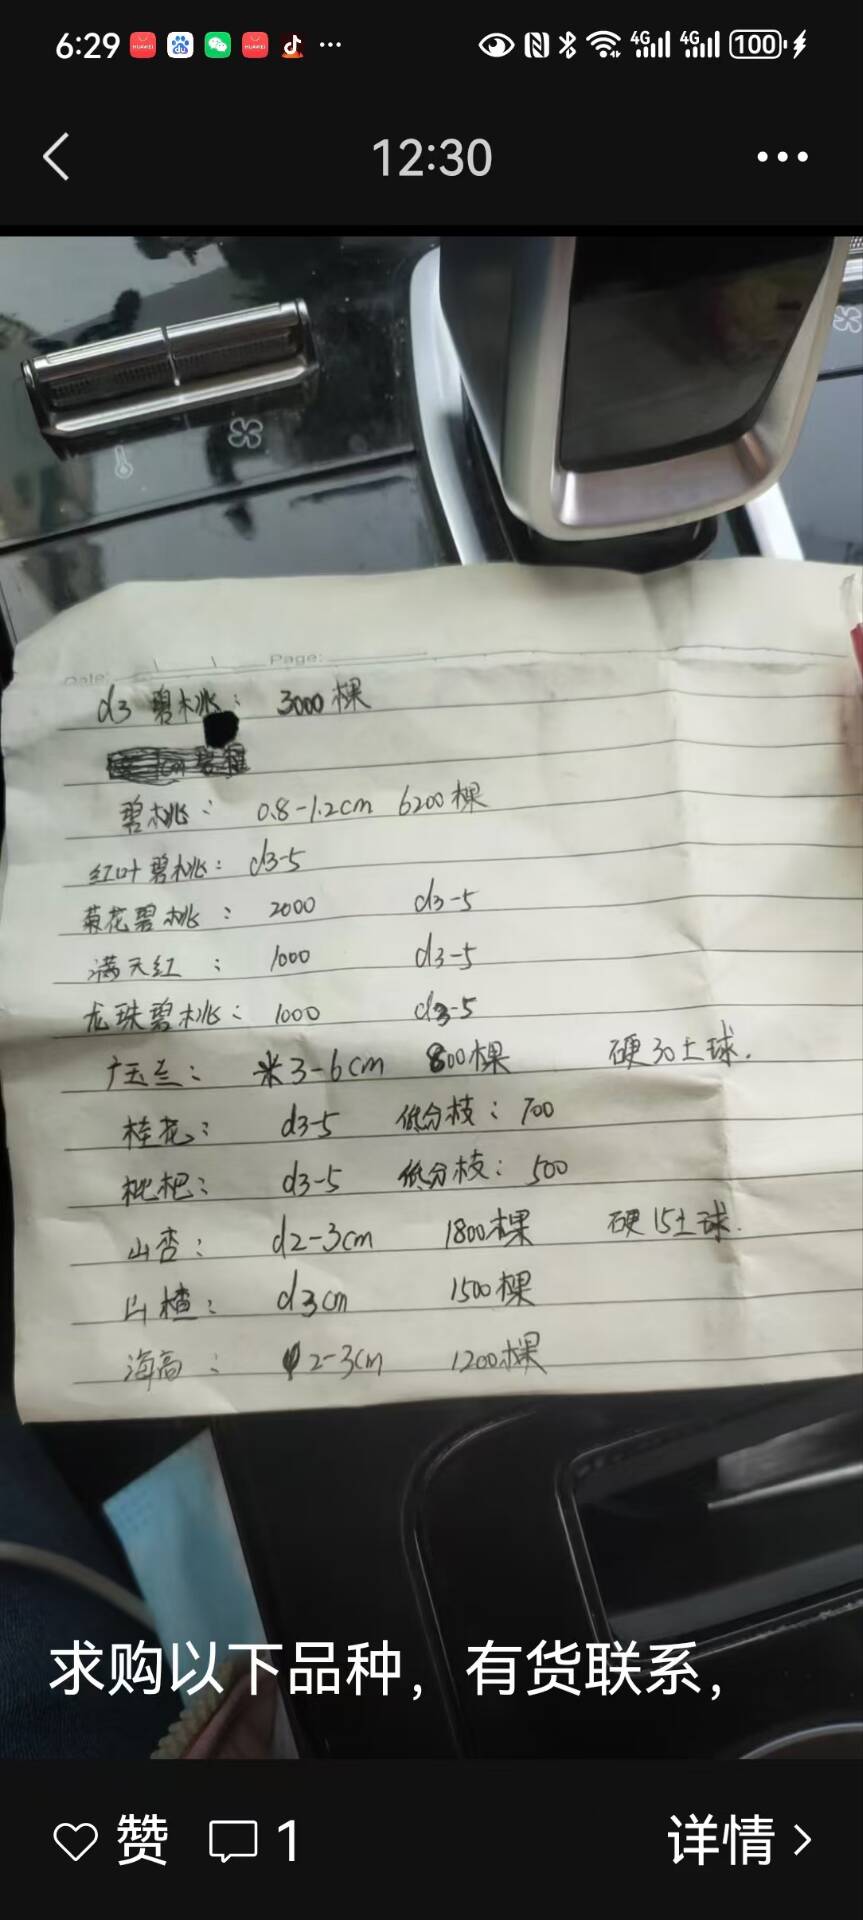 6:29
4G 4G 100
12:30
Date: Page:
d3 碧桃: 3000棵
碧桃: 0.8-1.2cm 6200棵
红叶碧桃: d3-5
菊花碧桃: 2000 d3-5
满天红: 1000 d3-5
龙珠碧桃: 1000 d3-5
广玉兰: 米3-6cm 800棵 硬30土球.
桂花: d3-5 低分枝: 700
枇杷: d3-5 低分枝: 500
山杏: d2-3cm 1800棵 硬15土球.
山楂: d3cm 1500棵
海高: 2-3cm 1200棵
求购以下品种，有货联系，
赞 1 详情